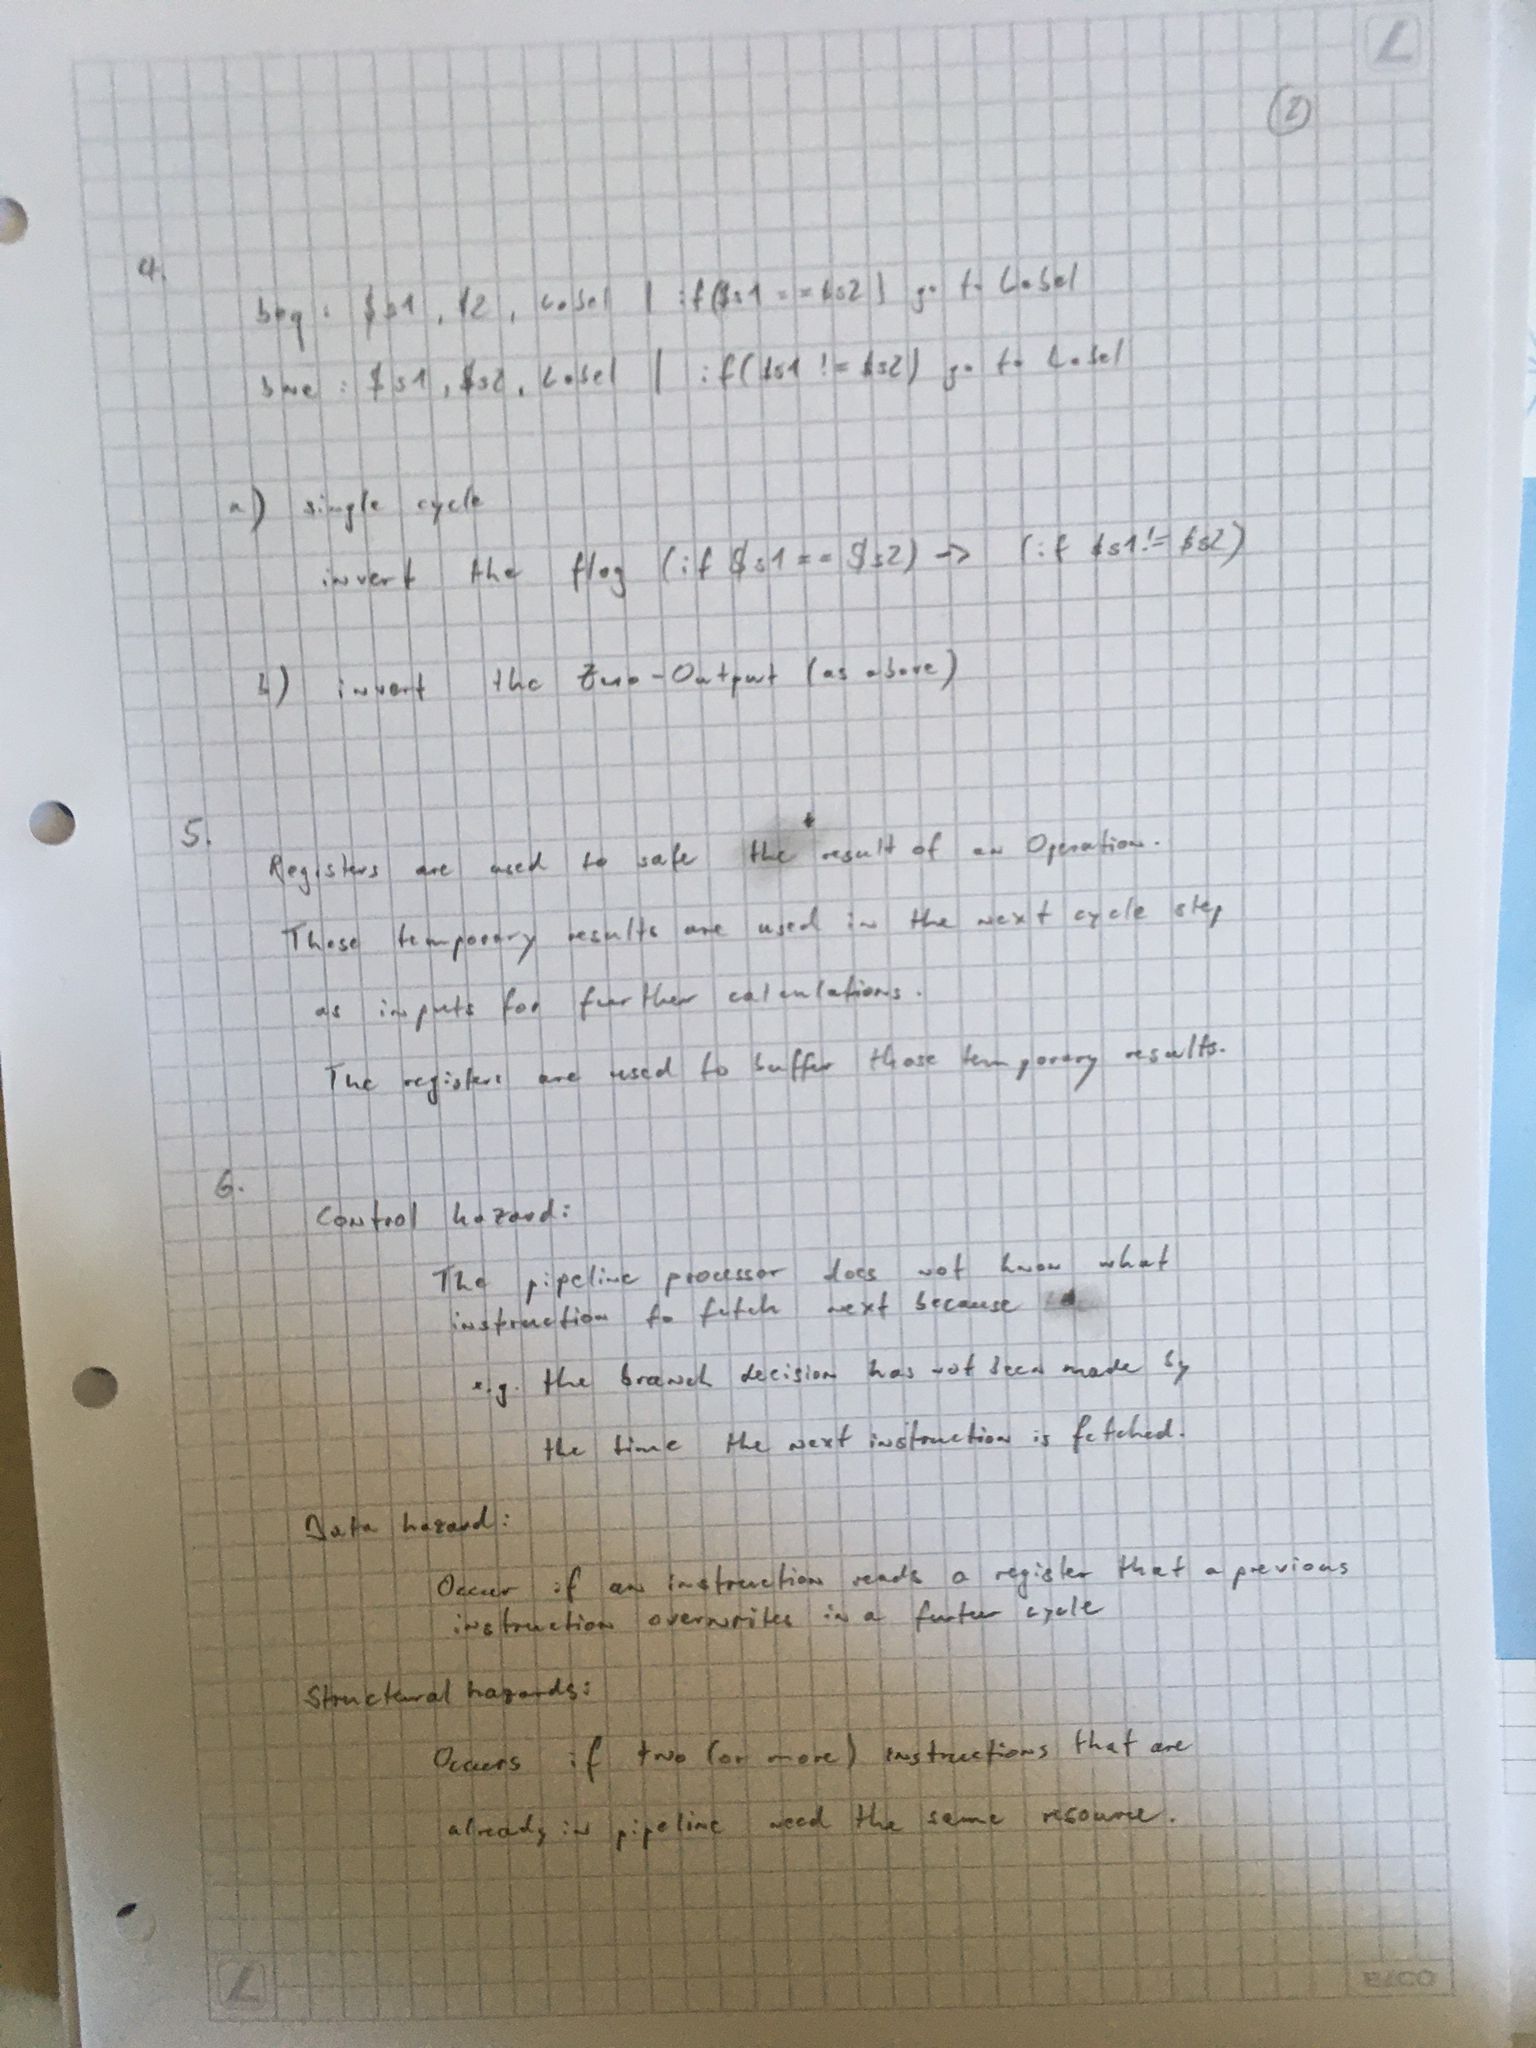 2
4.
beq: $s1, $2, Label | if($s1 == $s2) go to Label
bne: $s1, $s2, Label | if($s1 != $s2) go to Label
a) single cycle
invert the flag (if $s1 == $s2) -> (if $s1 != $s2)
b) invert the Zero-Output (as above)
5.
Registers are used to safe the result of an Operation.
Those temporary results are used in the next cycle step
as inputs for further calculations.
The registers are used to buffer those temporary results.
6.
Control hazard:
The pipeline processor does not know what
instruction to fetch next because
e.g. the branch decision has not been made by
the time the next instruction is fetched.
Data hazard:
Occur if an instruction reads a register that a previous
instruction overwrites in a further cycle
Structural hazards:
Occurs if two (or more) instructions that are
already in pipeline need the same resource.